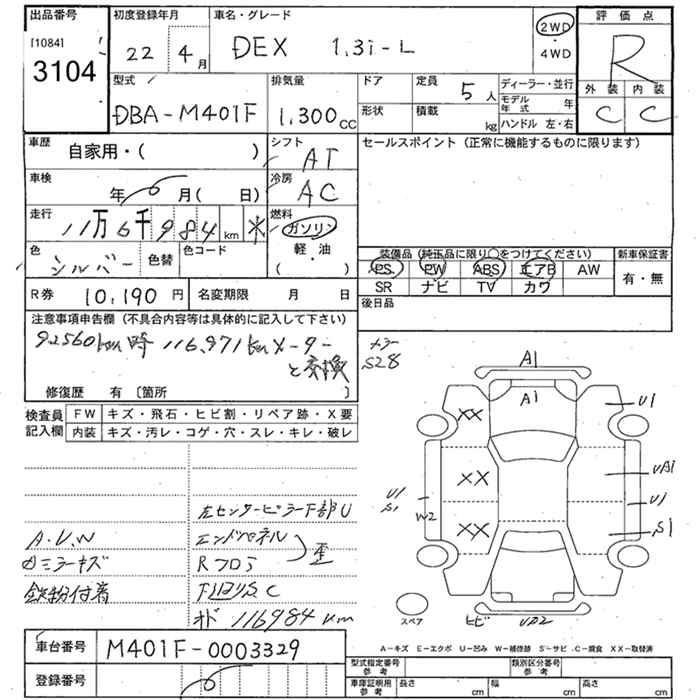 出品番号
[1084]
3104
初度登録年月
22 4月
車名・グレード
DEX 1.3i-L
2WD
・
4WD
評価点
R
外装 内装
C C
型式
DBA-M401F
排気量
1,300cc
ドア
形状
定員
5人
積載
kg
ディーラー・並行
モデル年式 年
ハンドル 左・右
車歴
自家用・( )
シフト
AT
セールスポイント(正常に機能するものに限ります)
車検
年 月( 日)
冷房
AC
走行
11万6千984km
燃料
ガソリン
軽・油
( )
色
シルバー
色替
色コード
装備品(純正品に限り○をつけてください)
新車保証書
PS PW ABS エアB AW
SR ナビ TV カワ
有・無
R券
10,190円
名変期限 月 日
後日品
注意事項申告欄(不具合内容等は具体的に記入して下さい)
92560km時 116,971kmメーター
と交換
修復歴 有〔箇所 〕
S28
検査員
記入欄
FW キズ・飛石・ヒビ割・リペア跡・X要
内装 キズ・汚レ・コゲ・穴・スレ・キレ・破レ
A1
A1
XX
U1
XX
UA1
U1
S1
W2
U1
XX
S1
スペア
ヒビ
UD2
左センターピラー下部U
A.V.N
エンドパネル
Rフロア
歪
鉄粉付着
下回りS,C
オド 116984km
A-キズ E-エクボ U-凹み W-補修跡 S-サビ C-腐食 XX-取替済
車台番号
M401F-0003329
登録番号
型式指定番号
参考
類別区分番号
参考
車庫証明用
参考
長さ cm
幅 cm
高さ cm